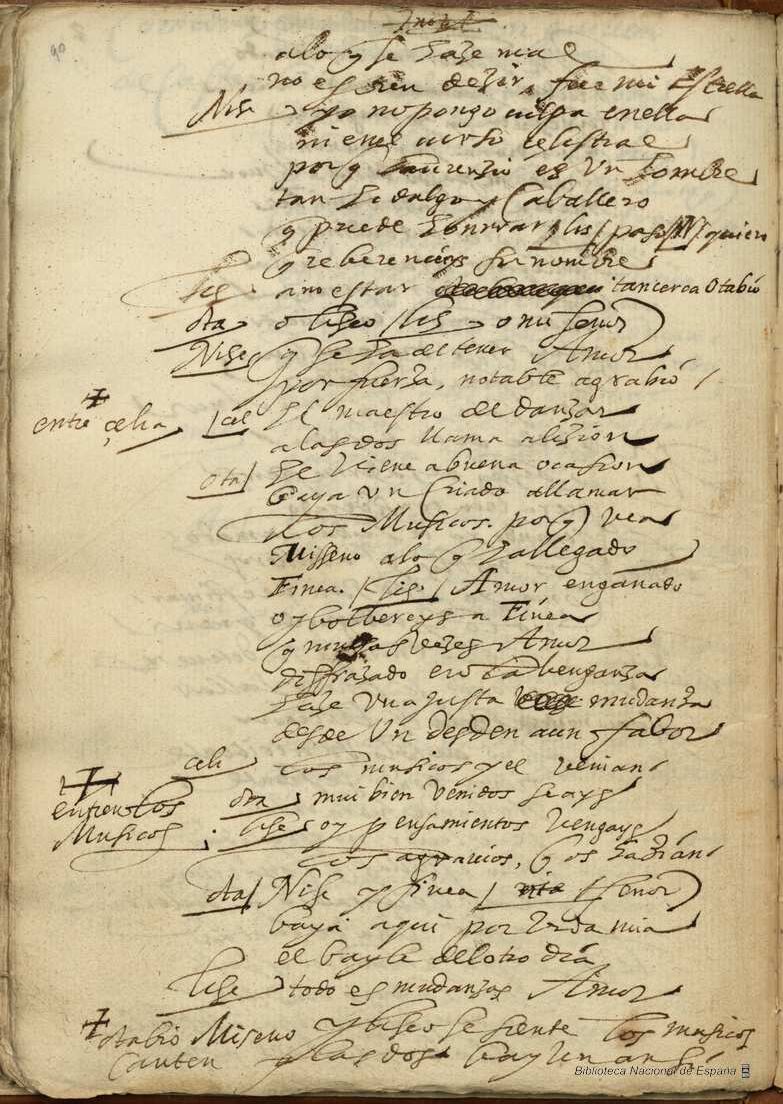 90
alo q̃ se haze mal
no es bien dezir, fue mi Estrella
Nise yo no pongo culpa en ella
ni en el curso celestial
porq̃ Laurenzio es Un hombre
tan hidalgo y Caballero
q̃ puede honrrar / lis / paso / quiero
q̃ reberencieys su nombre
Lis a no estar tan cerca Otabio
ota o liseo / lis o mi señor
Nise q̃ se ha de tener Amor
por fuerza, notable agrabio
entre çelia / cel El maestro de danzar
a las dos llama a lizion
ota / El Viene a buena ocasion
baya un Criado a llamar
los Musicos. porq̃ vea
Misseno a lo q̃ ha llegado
Finea. / Lis. / Amor engañado
oy bolbereys a Finea
q̃ muchas vezes Amor
disfrazado en la benganza
haze Una justa mudanza
desde Un desden a un fabor
celi los musicos y el venian
entren los
Musicos
ota mui bien Venidos seays
lise oy pensamientos Vengays
los agrauios, q̃ os hazian
ota / Nise y finea / señor
baya aqui por vida mia
el bayle del otro dia
lise todo es mudanzas Amor
otabio Miseno y liseo se sienten los musicos
Canten y las dos baylen ansi
Biblioteca Nacional de España